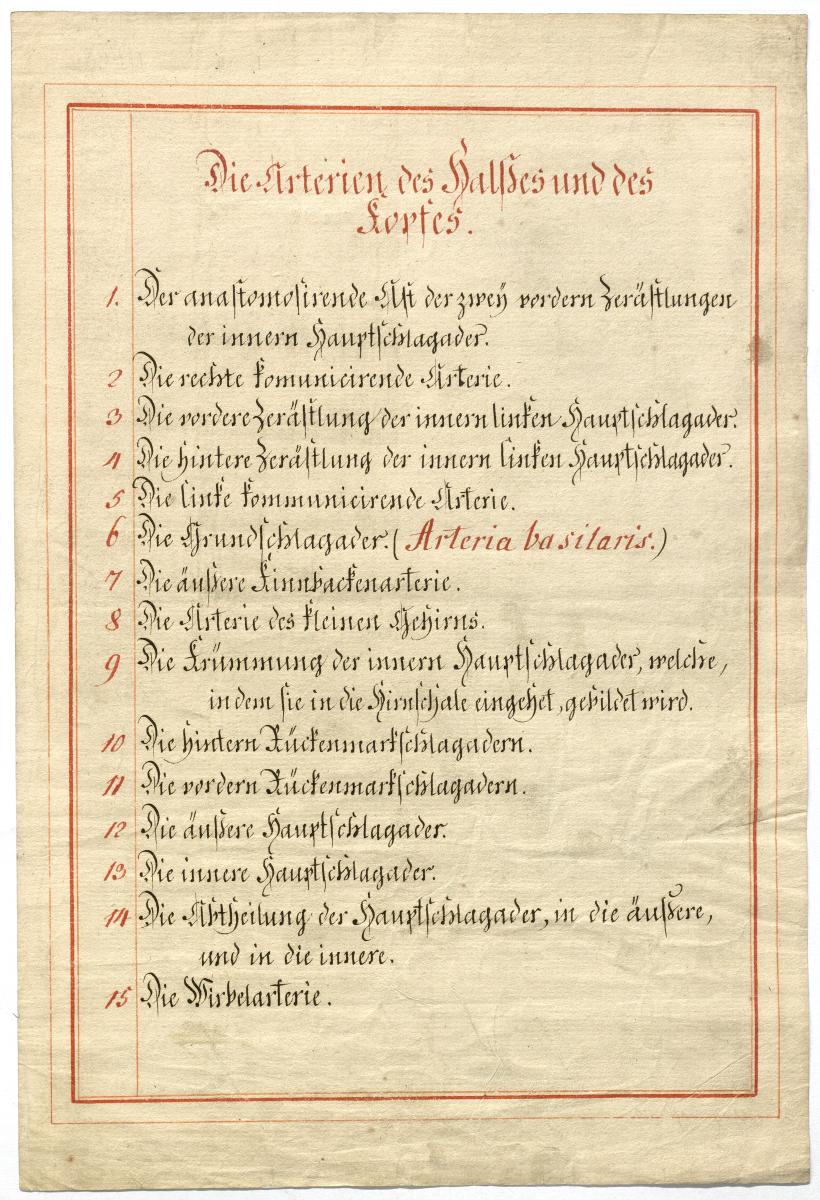 Die Arterien des Halßes und des
Kopfes.
1. Der anastomosirende Ast der zweÿ vordern Zerästlungen
der innern Hauptschlagader.
2 Die rechte komunicirende Arterie.
3 Die vordere Zerästlung der innern linken Hauptschlagader.
4 Die hintere Zerästlung der innern linken Hauptschlagader.
5 Die linke kommunicirende Arterie.
6 Die Grundschlagader. (Arteria basilaris.)
7 Die äußere Kinnbackenarterie.
8 Die Arterie des kleinen Gehirns.
9 Die Krümmung der innern Hauptschlagader, welche,
in dem sie in die Hirnschale eingehet, gebildet wird.
10 Die hintern Rückenmarkschlagadern.
11 Die vordern Rückenmarkschlagadern.
12 Die äußere Hauptschlagader.
13 Die innere Hauptschlagader.
14 Die Abtheilung der Hauptschlagader, in die äußere,
und in die innere.
15 Die Wirbelarterie.